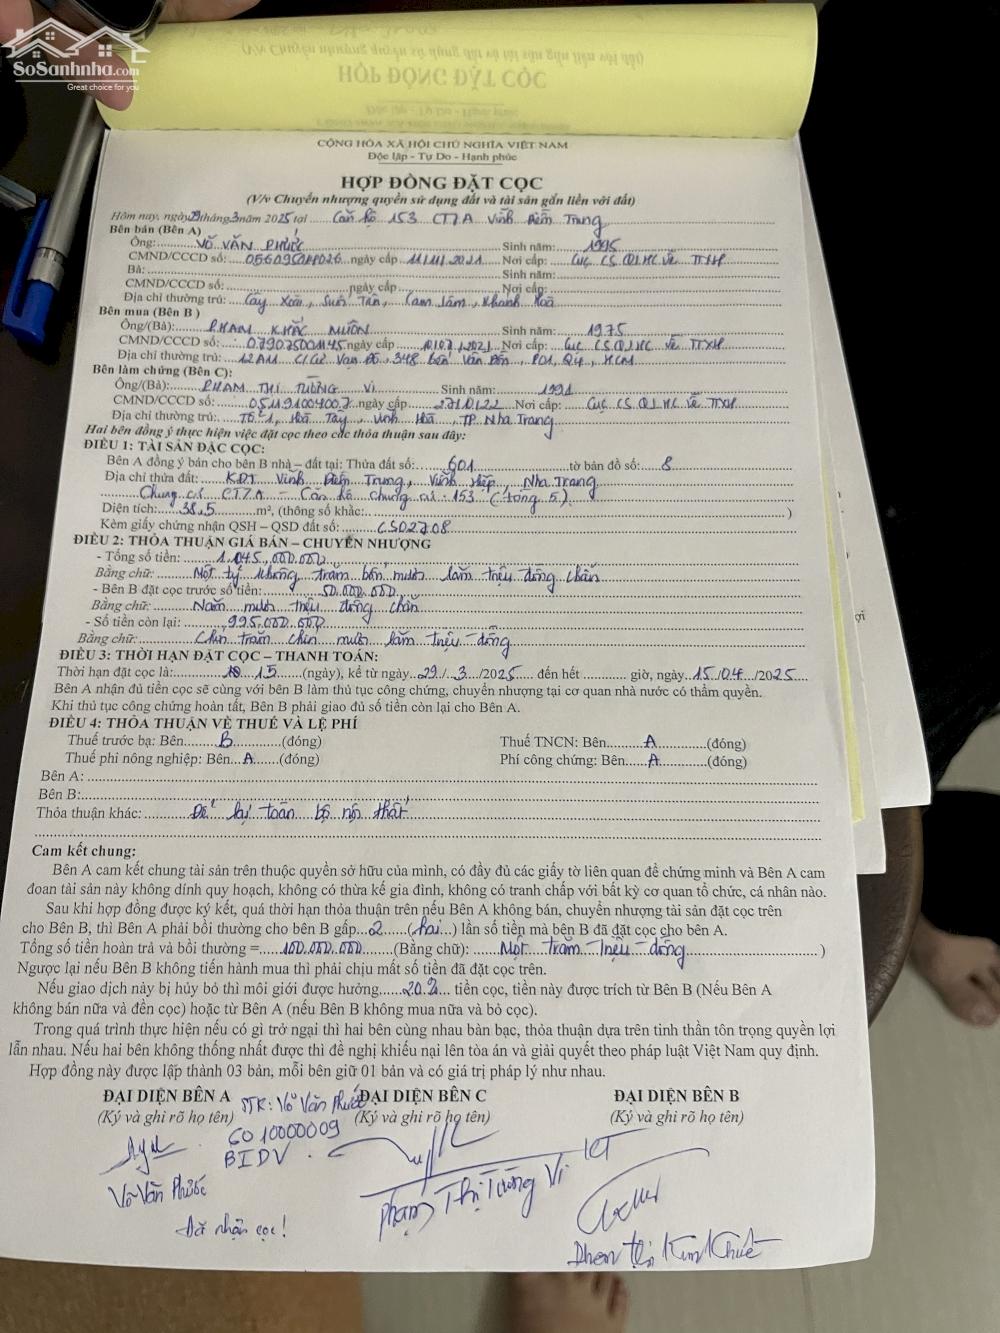 SoSanhnha.com
Great choice for you
(V/v Chuyển nhượng quyền sử dụng đất và tài sản gắn liền với đất)
HỢP ĐỒNG ĐẶT CỌC
Độc lập - Tự Do - Hạnh phúc
CỘNG HÒA XÃ HỘI CHỦ NGHĨA VIỆT NAM
Độc lập - Tự Do - Hạnh phúc
HỢP ĐỒNG ĐẶT CỌC
(V/v Chuyển nhượng quyền sử dụng đất và tài sản gắn liền với đất)
Hôm nay, ngày 29 tháng 3 năm 2025 tại Căn hộ 153 CT7A Vĩnh Điềm Trung
Bên bán (Bên A)
Ông: VÕ VĂN PHƯỚC Sinh năm: 1995
CMND/CCCD số: ngày cấp 11/11/2021 Nơi cấp: Cục CS QLHC về TTXH
Bà: Sinh năm:
CMND/CCCD số: ngày cấp Nơi cấp:
Địa chỉ thường trú: Cây Xoài, Suối Tân, Cam Lâm, Khánh Hoà
Bên mua (Bên B )
Ông/(Bà): PHẠM KHẮC MUÔN Sinh năm: 1975
CMND/CCCD số: 079075001145 ngày cấp Nơi cấp: Cục CS QLHC về TTXH
Địa chỉ thường trú: 12A11 C/Cư Vạn Đô, 348 Bến Vân Đồn, P01, Q4, HCM
Bên làm chứng (Bên C):
Ông/(Bà): PHẠM THỊ TƯỜNG VI Sinh năm: 1991
CMND/CCCD số: 051191004007 ngày cấp Nơi cấp: Cục CS QLHC về TTXH
Địa chỉ thường trú: Tổ 1, Hoà Tây, Vĩnh Hoà, TP Nha Trang
Hai bên đồng ý thực hiện việc đặt cọc theo các thỏa thuận sau đây:
ĐIỀU 1: TÀI SẢN ĐẶC CỌC:
Bên A đồng ý bán cho bên B nhà – đất tại: Thửa đất số: 601 tờ bản đồ số: 8
Địa chỉ thửa đất: KĐT Vĩnh Điềm Trung, Vĩnh Hiệp, Nha Trang
Chung cư CT7A - Căn hộ chung cư: 153 (tầng 5)
Diện tích: 38,5 m², (thông số khác: )
Kèm giấy chứng nhận QSH – QSD đất số: CS02708
ĐIỀU 2: THỎA THUẬN GIÁ BÁN – CHUYỂN NHƯỢNG
- Tổng số tiền: 1.045.000.000
Bằng chữ: Một tỷ không trăm bốn mươi lăm triệu đồng chẵn
- Bên B đặt cọc trước số tiền: 50.000.000
Bằng chữ: Năm mươi triệu đồng chẵn
- Số tiền còn lại: 995.000.000
Bằng chữ: Chín trăm chín mươi lăm triệu đồng
ĐIỀU 3: THỜI HẠN ĐẶT CỌC – THANH TOÁN:
Thời hạn đặt cọc là: 15 (ngày), kể từ ngày 29/3/2025 đến hết giờ, ngày 15/04/2025
Bên A nhận đủ tiền cọc sẽ cùng với bên B làm thủ tục công chứng, chuyển nhượng tại cơ quan nhà nước có thẩm quyền.
Khi thủ tục công chứng hoàn tất, Bên B phải giao đủ số tiền còn lại cho Bên A.
ĐIỀU 4: THỎA THUẬN VỀ THUẾ VÀ LỆ PHÍ
Thuế trước bạ: Bên B (đóng) Thuế TNCN: Bên A (đóng)
Thuế phi nông nghiệp: Bên A (đóng) Phí công chứng: Bên A (đóng)
Bên A:
Bên B:
Thỏa thuận khác: Để lại toàn bộ nội thất
Cam kết chung:
Bên A cam kết chung tài sản trên thuộc quyền sở hữu của mình, có đầy đủ các giấy tờ liên quan để chứng minh và Bên A cam
đoan tài sản này không dính quy hoạch, không có thừa kế gia đình, không có tranh chấp với bất kỳ cơ quan tổ chức, cá nhân nào.
Sau khi hợp đồng được ký kết, quá thời hạn thỏa thuận trên nếu Bên A không bán, chuyển nhượng tài sản đặt cọc trên
cho Bên B, thì Bên A phải bồi thường cho bên B gấp 2 (hai) lần số tiền mà bên B đã đặt cọc cho bên A.
Tổng số tiền hoàn trả và bồi thường = 100.000.000 (Bằng chữ): Một trăm triệu đồng )
Ngược lại nếu Bên B không tiến hành mua thì phải chịu mất số tiền đã đặt cọc trên.
Nếu giao dịch này bị hủy bỏ thì môi giới được hưởng 20% tiền cọc, tiền này được trích từ Bên B (Nếu Bên A
không bán nữa và đền cọc) hoặc từ Bên A (nếu Bên B không mua nữa và bỏ cọc).
Trong quá trình thực hiện nếu có gì trở ngại thì hai bên cùng nhau bàn bạc, thỏa thuận dựa trên tinh thần tôn trọng quyền lợi
lẫn nhau. Nếu hai bên không thống nhất được thì đề nghị khiếu nại lên tòa án và giải quyết theo pháp luật Việt Nam quy định.
Hợp đồng này được lập thành 03 bản, mỗi bên giữ 01 bản và có giá trị pháp lý như nhau.
ĐẠI DIỆN BÊN A ĐẠI DIỆN BÊN C ĐẠI DIỆN BÊN B
(Ký và ghi rõ họ tên) (Ký và ghi rõ họ tên) (Ký và ghi rõ họ tên)
STK: Võ Văn Phước
6010000009
BIDV
Võ Văn Phước
Đã nhận cọc!
Phạm Thị Tường Vi
KT
Phan Thị Kim Khuê